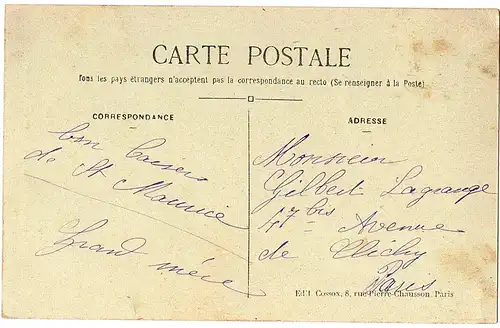 CARTE POSTALE
Tous les pays étrangers n'acceptent pas la correspondance au recto (Se renseigner à la Poste)
CORRESPONDANCE
bon baisers
de St Maurice
Grand mère
ADRESSE
Monsieur
Gilbert Lagrange
47 bis Avenue
de Clichy
Paris
Edit. Cossox, 8, rue Pierre-Chausson. Paris